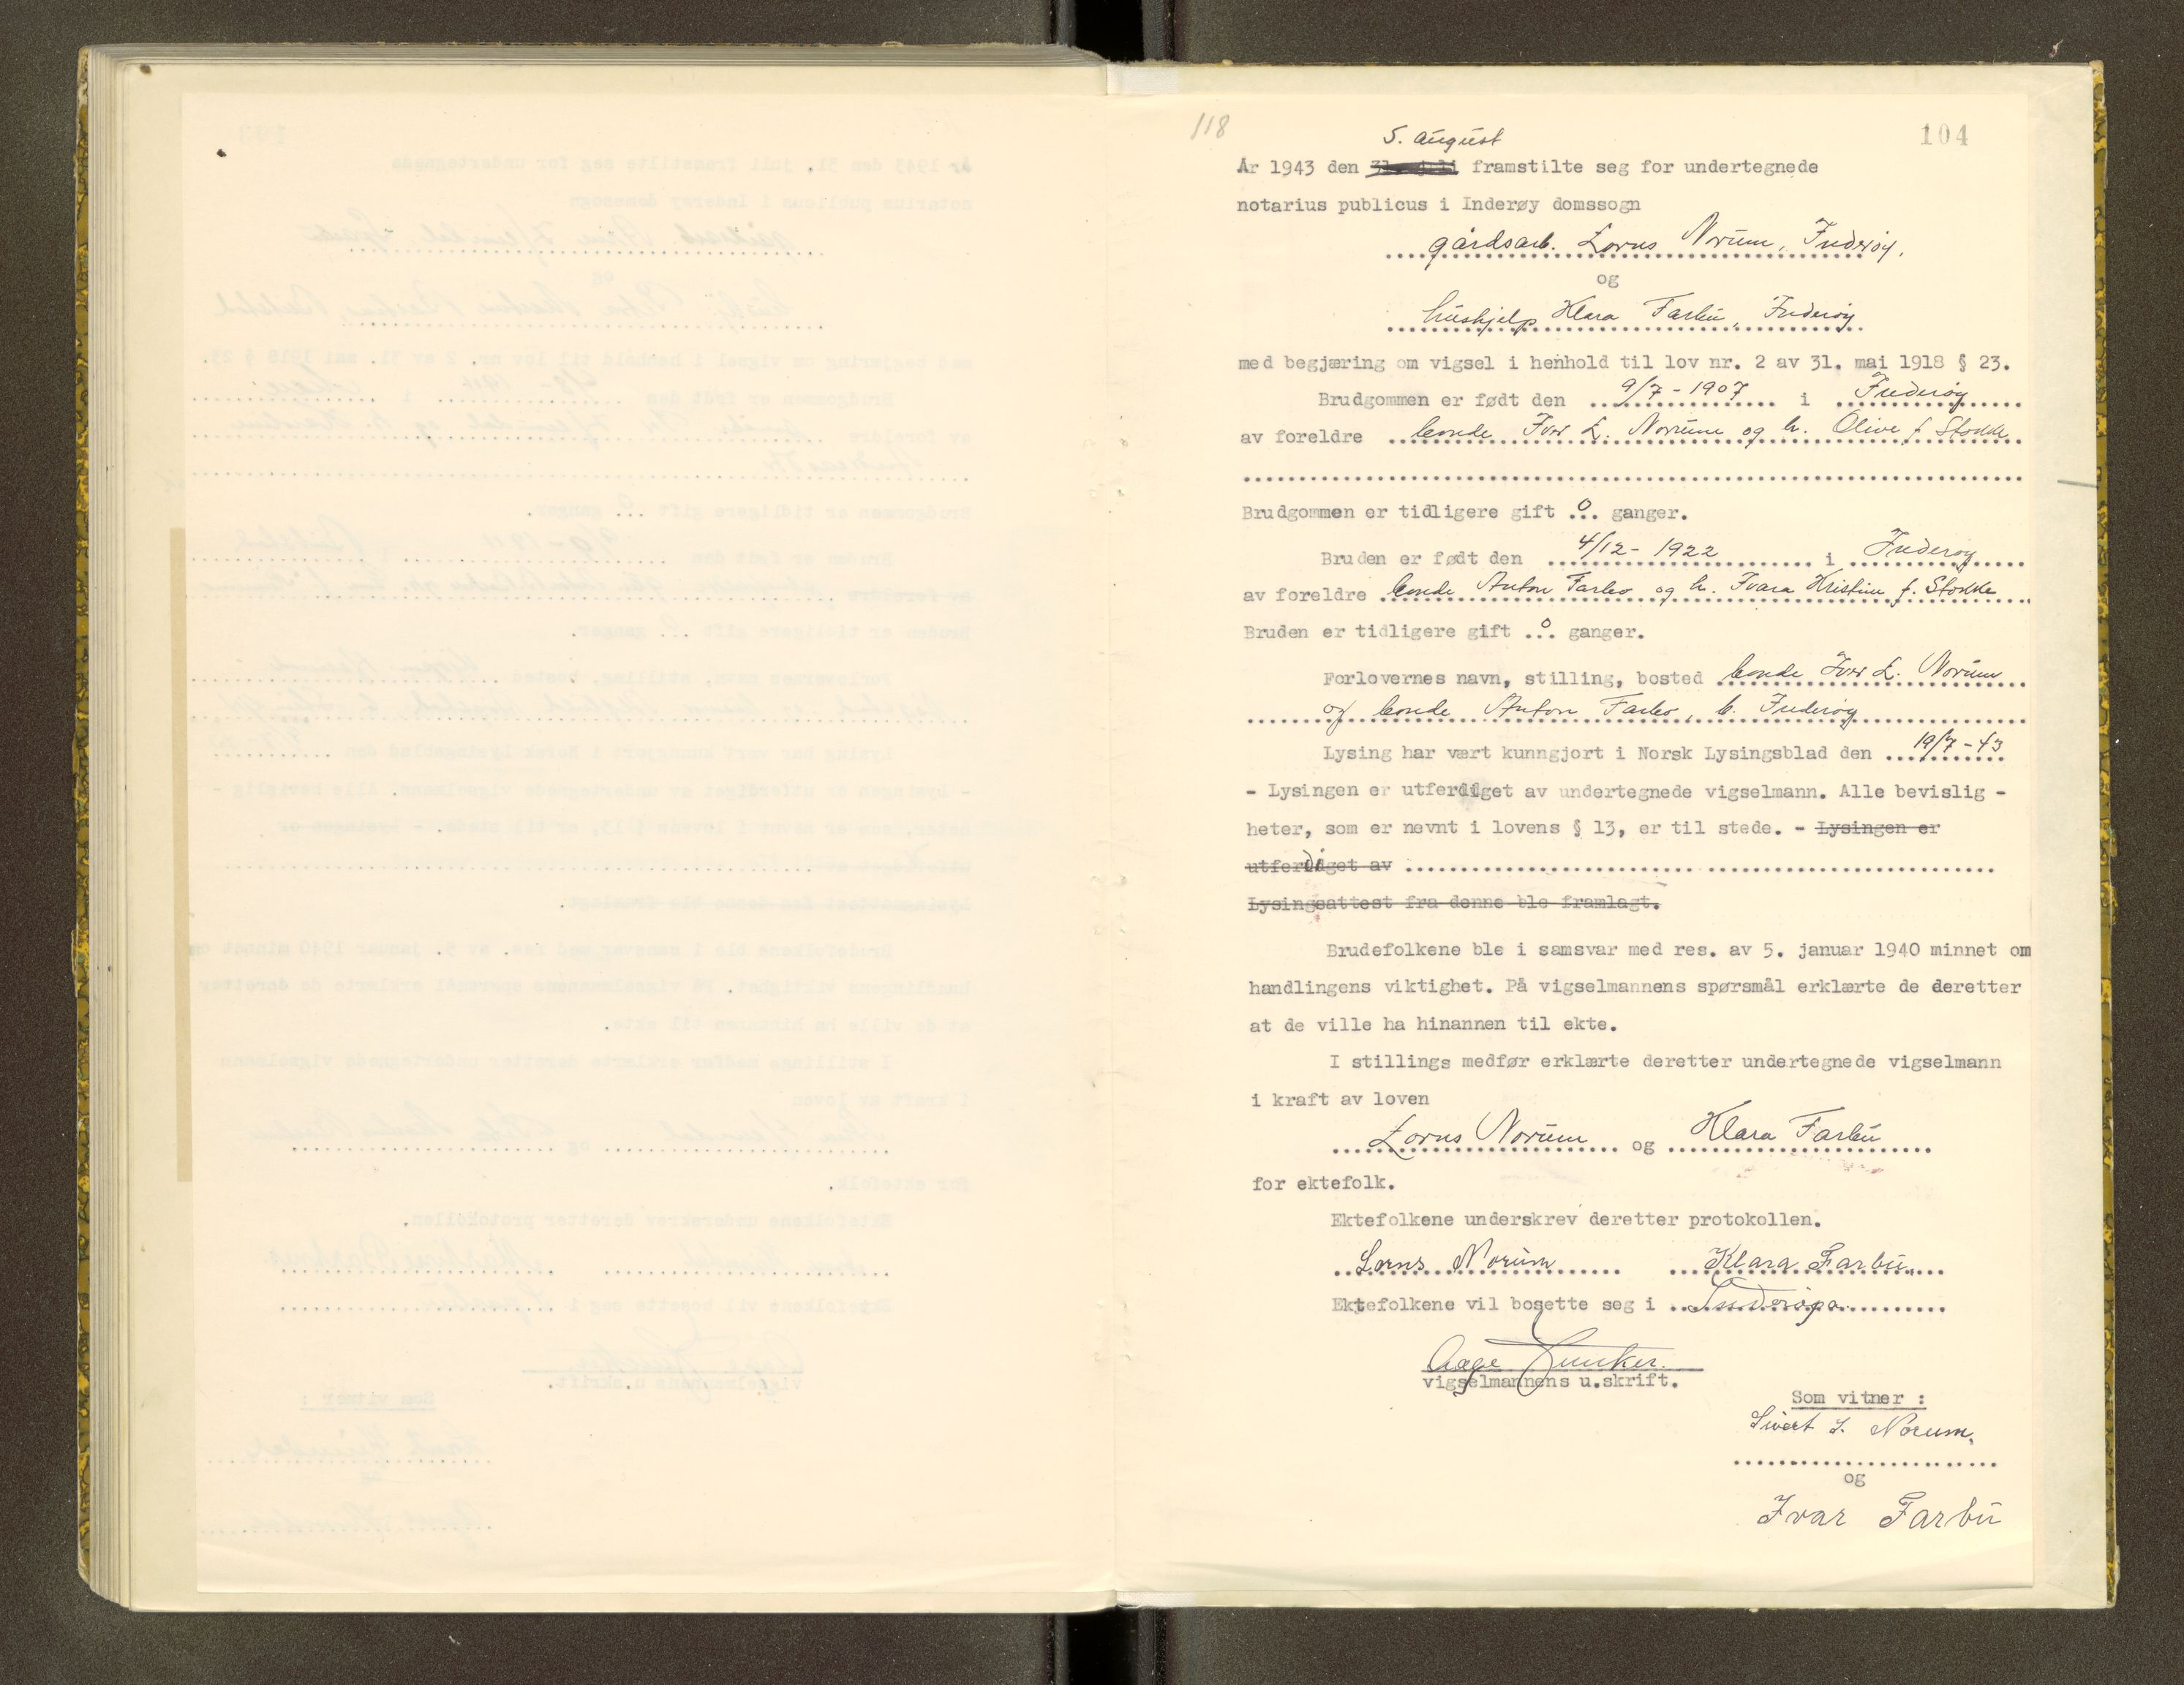 118
104
5. august
År 1943 den 31. juli framstilte seg for undertegnede
notarius publicus i Inderøy domssogn
gårdsarb. Lorns Norum, Inderøy.
og
hushjelp Klara Farbu, Inderøy
med begjæring om vigsel i henhold til lov nr. 2 av 31. mai 1918 § 23.
Brudgommen er født den 9/7 - 1907 i Inderøy
av foreldre bonde Ivar L. Norum og h. Olive f. Stokke
Brudgommen er tidligere gift 0 ganger.
Bruden er født den 4/12 - 1922 i Inderøy
av foreldre bonde Anton Farbo og h. Ivara Kristine f. Stokke
Bruden er tidligere gift 0 ganger.
Forlovernes navn, stilling, bosted bonde Ivar L. Norum
og bonde Anton Farbo, b. Inderøy
Lysing har vært kunngjort i Norsk Lysingsblad den 19/7 - 43
- Lysingen er utferdiget av undertegnede vigselmann. Alle bevislig -
heter, som er nevnt i lovens § 13, er til stede. - Lysingen er
utferdiget av
Lysingsattest fra denne ble framlagt.
Brudefolkene ble i samsvar med res. av 5. januar 1940 minnet om
handlingens viktighet. På vigselmannens spørsmål erklærte de deretter
at de ville ha hinannen til ekte.
I stillings medfør erklærte deretter undertegnede vigselmann
i kraft av loven
Lorns Norum og Klara Farbu
for ektefolk.
Ektefolkene underskrev deretter protokollen.
Lorns Norum Klara Farbu.
Ektefolkene vil bosette seg i Inderøya
Aage Junker.
vigselmannens u.skrift.
Som vitner :
Sivert I. Norum.
og
Ivar Farbu